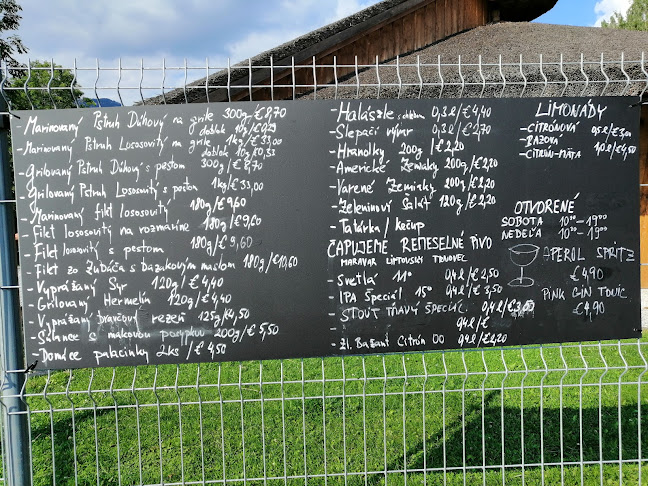 - Marinovaný Pstruh Dúhový na grile 300g/€8,70
doblok 10g/€0,29
- Marinovaný Pstruh Lososovitý na grile 1kg/€33,00
doblok 10g/€0,33
- Grilovaný Pstruh Dúhový s pestom 300g/€8,70
- Grilovaný Pstruh Lososovitý s pestom 1kg/€33,00
- Marinovaný filet lososovitý 180g/€9,60
- Filet lososovitý na rozmarine 180g/€9,60
- Filet lososovitý s pestom 180g/€9,60
- Filet zo Zubáča s bazakovým maslom 180g/€10,60
- Vyprážaný Syr 120g/€4,40
- Grilovaný Hermelín 120g/€4,40
- Vyprážaný Bravčový rezeň 125g/€4,50
- Šúlance s makovou posypkou 200g/€5,50
- Domáce palacinky 2ks/€4,50
- Halászle 0,3l/€4,40
- Slepačí vývar 0,3l/€2,70
- Hranolky 200g/€2,20
- Americké Zemiaky 200g/€2,20
- Varené Zemiaky 200g/€2,20
- Zeleninový Šalát 120g/€2,20
- Tatárka/kečup
ČAPUJEME REMESELNÉ PIVO
MARAVAR LIPTOVSKÝ TRNOVEC
- Svetlá 11° 0,4l/€2,50
- IPA Špeciál 15° 0,4l/€3,50
- STOUT TMAVÝ ŠPECIÁL 0,4l/€3,50
- 0,4l/€
- Zl. Bažant Citrón 00 0,4l/€2,20
LIMONÁDY
- CITRÓNOVÁ 0,5l/€3,00
- BAZOVÁ 1,0l/€4,50
- CITRÓN-MÄTA
OTVORENÉ
SOBOTA 10⁰⁰-19⁰⁰
NEDEĽA 10⁰⁰-19⁰⁰
APEROL SPRITZ
€4,90
PINK GIN TONIC
€4,90